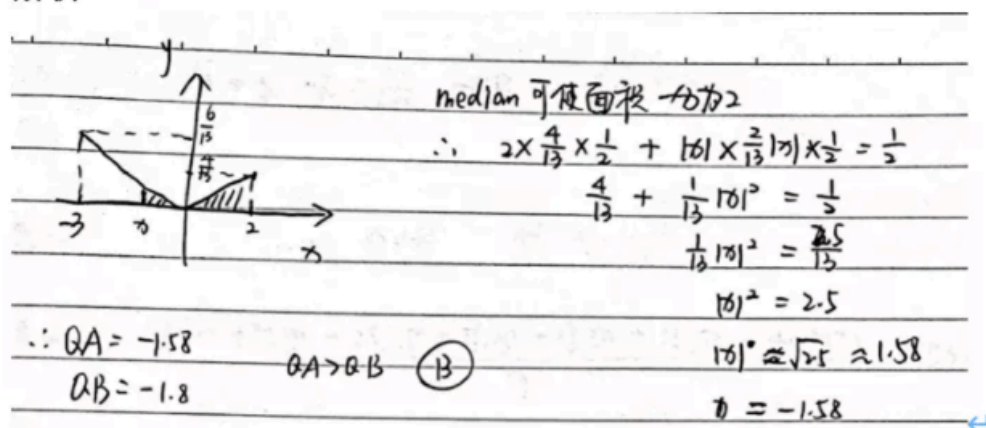 y
6/13
4/13
-3 x 2
x
median 可使面积一分为2
∴ 2×4/13×1/2 + |x|×2/13|x|×1/2 = 1/2
4/13 + 1/13|x|² = 1/2
1/13|x|² = 2.5/13
|x|² = 2.5
|x| ≈ √2.5 ≈ 1.58
x = -1.58
∴ QA = -1.58
QB = -1.8
QA > QB B